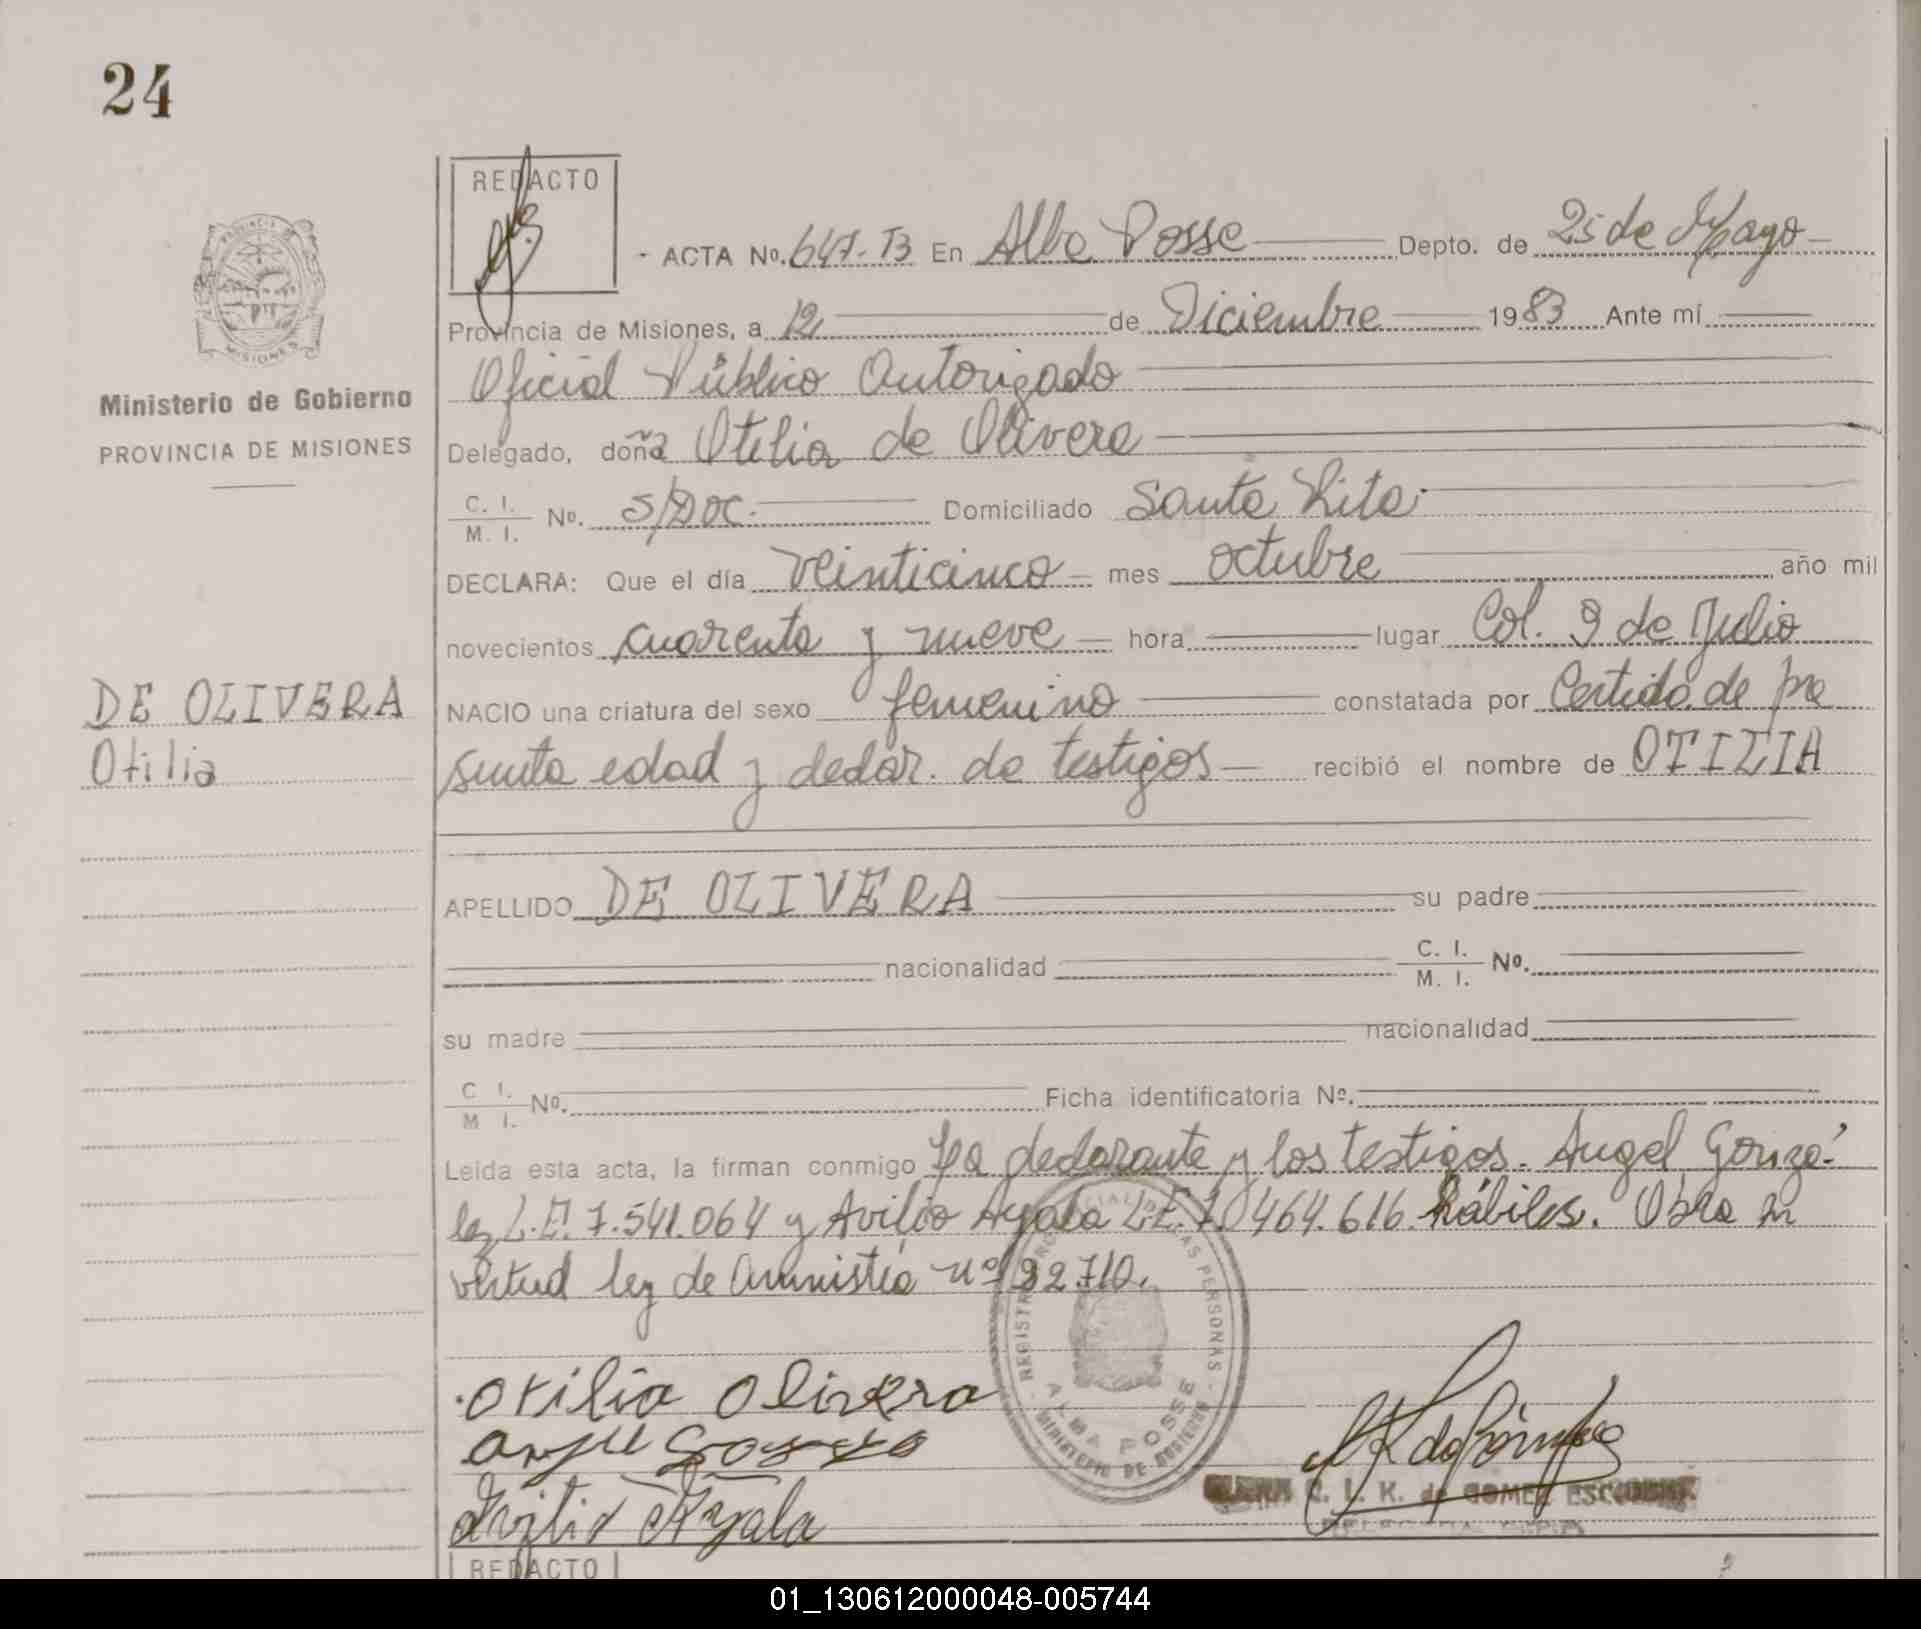 24
REDACTO
ACTA No. 647-B En Alba Posse Depto. de 25 de Mayo
Provincia de Misiones, a 12 de Diciembre 1983 Ante mí
Oficial Público Autorizado
Ministerio de Gobierno
PROVINCIA DE MISIONES
Delegado, doña Otilia de Olivera
C. I. M. I. No. S/Doc. Domiciliado Santa Rita
DECLARA: Que el día veinticinco mes octubre año mil
novecientos cuarenta y nueve hora lugar Col. 9 de Julio
DE OLIVERA
Otilia
NACIO una criatura del sexo femenino constatada por Certido. de pre
sunta edad y declar. de testigos recibió el nombre de OTILIA
APELLIDO DE OLIVERA su padre
nacionalidad C. I. M. I. No.
su madre nacionalidad
C I. M I. No. Ficha identificatoria No.
Leida esta acta, la firman conmigo la declarante y los testigos. Angel Gonzá-
lez L.E. 7.541.064 y Avilio Ayala L.E. 7.464.616 hábiles. Obra en
virtud ley de Amnistía nº 22.710.
REGISTRO PROVINCIAL DE LAS PERSONAS
ALBA POSSE
MINISTERIO DE GOBIERNO
Otilia Olivera
Avilio Ayala
R. L. K. de GOMEZ ESCOBAR
REDACTO
01_130612000048-005744